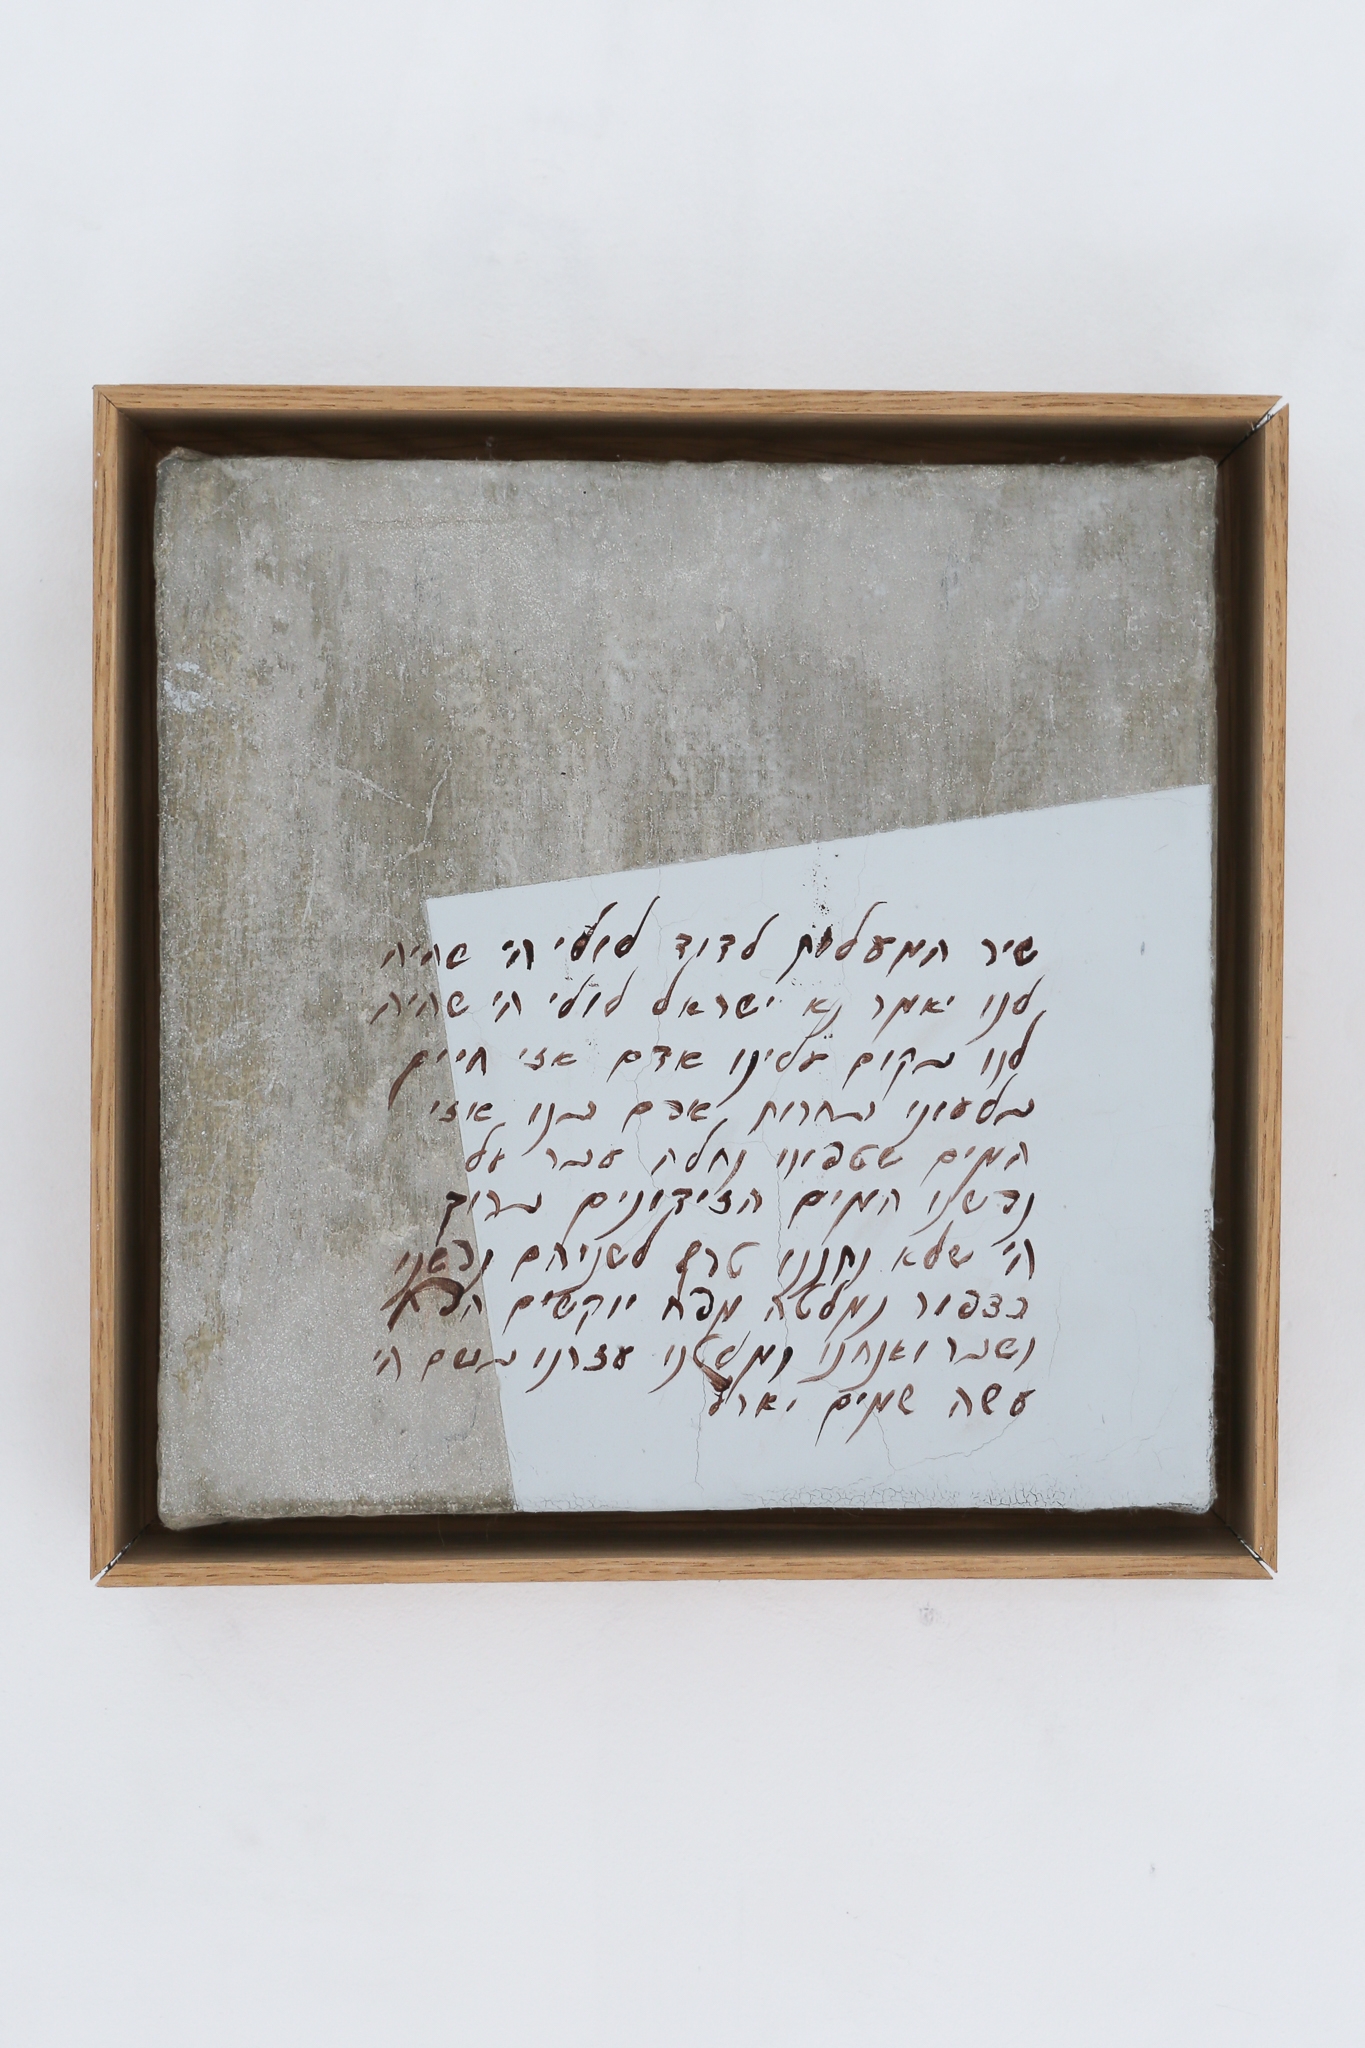 שיר המעלות לדוד לולי הי שהיה
לנו יאמר נא ישראל לולי הי שהיה
לנו בקום עלינו אדם אזי חיים
בלעונו בחרות אפם בנו איזי
המים שטפונו נחלה עבר על
נפשנו המים הזידונים ברוך
הי שלא נתננו טרף לשניהם נפשנו
כצפור נמלטה מפח יוקשים הפח
נשבר ואנחנו נמלטנו עזרנו בשם הי
עשה שמים וארץ